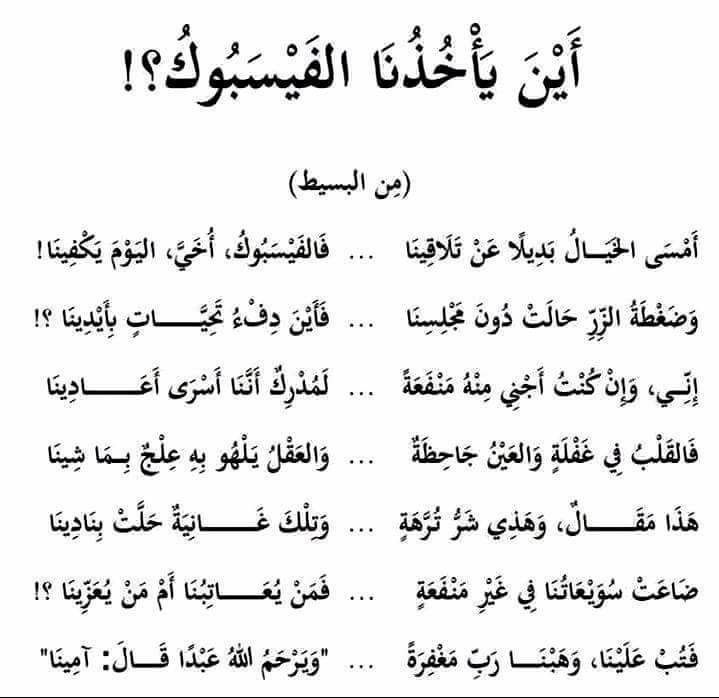 أَيْنَ يَأْخُذُنَا الفَيْسَبُوكُ؟!
(مِن البسيط)
أَمْسَى الخَيَـــالُ بَدِيلًا عَنْ تَلَاقِينَا ... فَالفَيْسَبُوكُ، أُخَيَّ، اليَوْمَ يَكْفِينَا!
وَضَغْطَةُ الزِّرِّ حَالَتْ دُونَ مَجْلِسِنَا ... فَأَيْنَ دِفْءُ تَحِيَّـــــاتٍ بِأَيْدِينَا ؟!
إِنِّـــي، وَإِنْ كُنْتُ أَجْنِي مِنْهُ مَنْفَعَةً ... لَمُدْرِكٌ أَنَّنَا أَسْرَى أَعَـــــادِينَا
فَالقَلْبُ فِي غَفْلَةٍ وَالعَيْنُ جَاحِظَةٌ ... وَالعَقْلُ يَلْهُو بِهِ عِلْجٌ بِـمَا شِينَا
هَذَا مَقَـــــالٌ، وَهَذِي شَرُّ تُرَّهَةٍ ... وَتِلْكَ غَـــــانِيَةٌ حَلَّتْ بِنَادِينَا
ضَاعَتْ سُوَيْعَاتُنَا فِي غَيْرِ مَنْفَعَةٍ ... فَمَنْ يُعَـــــاتِبُنَا أَمْ مَنْ يُعَزِّينَا ؟!
فَتُبْ عَلَيْنَا، وَهَبْنَـــا رَبِّ مَغْفِرَةً ... "وَيَرْحَمُ اللهُ عَبْدًا قَـــالَ: آمِينَا"